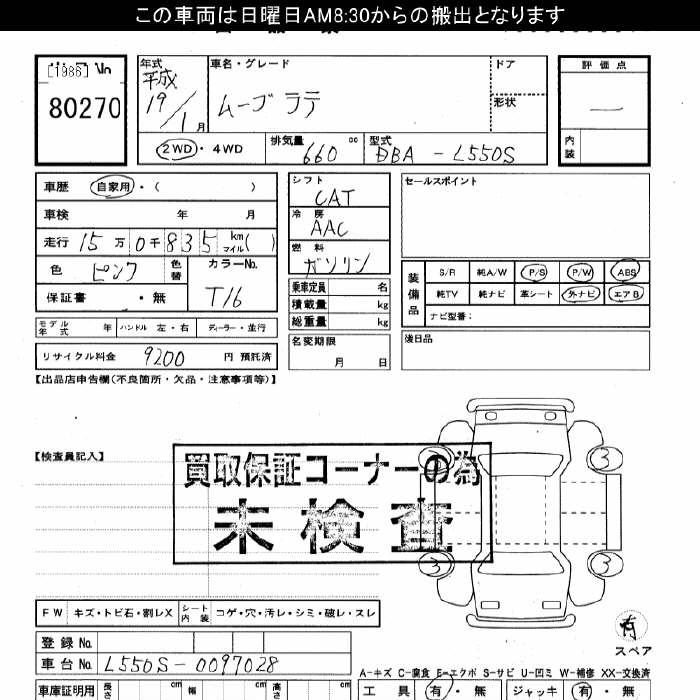 この車両は日曜日AM8:30からの搬出となります
[1986]
80270
年式 平成 19/1月
車名・グレード ムーヴ ラテ
ドア
形状
評価点
―
内装
2WD・4WD
排気量 660 cc
型式 DBA - L550S
車歴 自家用・( )
車検 年 月
走行 15万0千835 km マイル( )
色 ピンク 色替
カラーNo. T16
保証書 ・無
モデル年式 年 ハンドル 左・右 ディーラー・並行
リサイクル料金 9200 円 預託済
シフト CAT
冷房 AAC
燃料 ガソリン
乗車定員 名
積載量 kg
総重量 kg
名変期限 月 日
セールスポイント
装備品
S/R 純A/W P/S P/W ABS
純TV 純ナビ 革シート 外ナビ エアB
ナビ型番:
後日品
【出品店申告欄(不良箇所・欠品・注意事項等)】
【検査員記入】
買取保証コーナーの為
未検査
3 3
3 3
有
スペア
FW キズ・トビ石・割レX シート内装 コゲ・穴・汚レ・シミ・破レ・スレ
登録No.
車台No. L550S-0097028
A-キズ C-腐食 E-エクボ S-サビ U-凹ミ W-補修 XX-交換済
車庫証明用 長さ cm 幅 cm 高さ cm
工具 有・無 ジャッキ 有・無